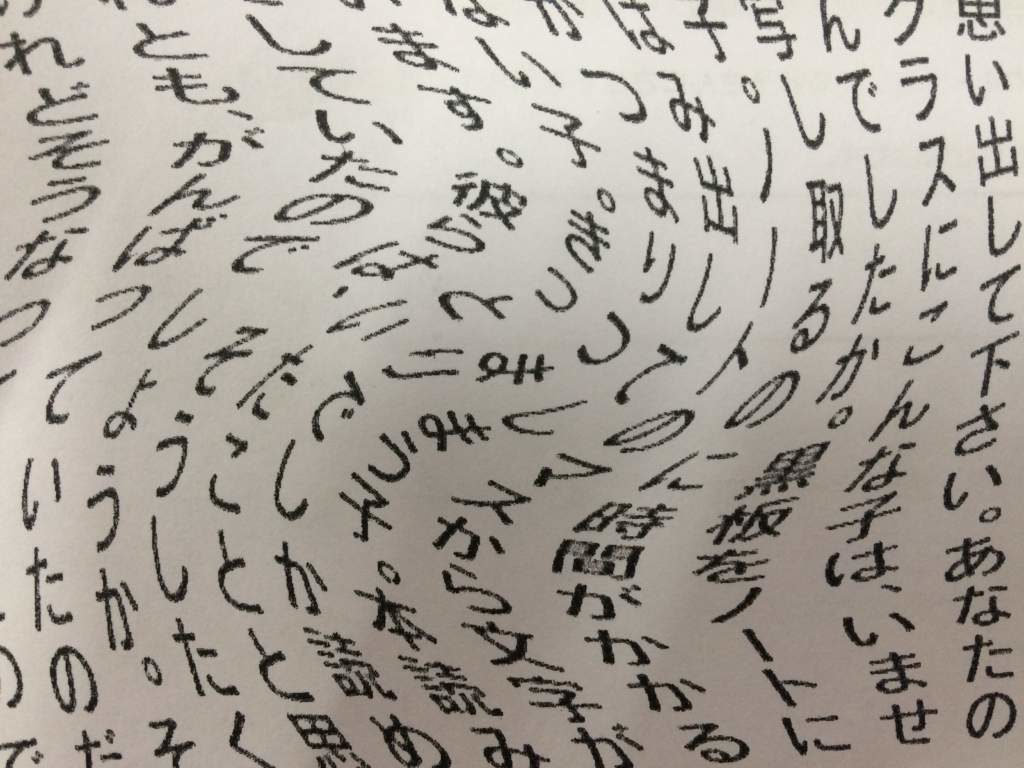 思い出して下さい。あなたの
クラスにこんな子は、いませ
んでしたか。黒板をノートに
写し取るのに時間がかかる
子。ノートのマスから文字が
はみ出してしまう子。本読み
がつまりつまりでしか読め
ない子。きっといたことと思
います。彼らは、そうしたく
していたのでしょうか。そ
とも、がんばっていたのだ
れどそうなって